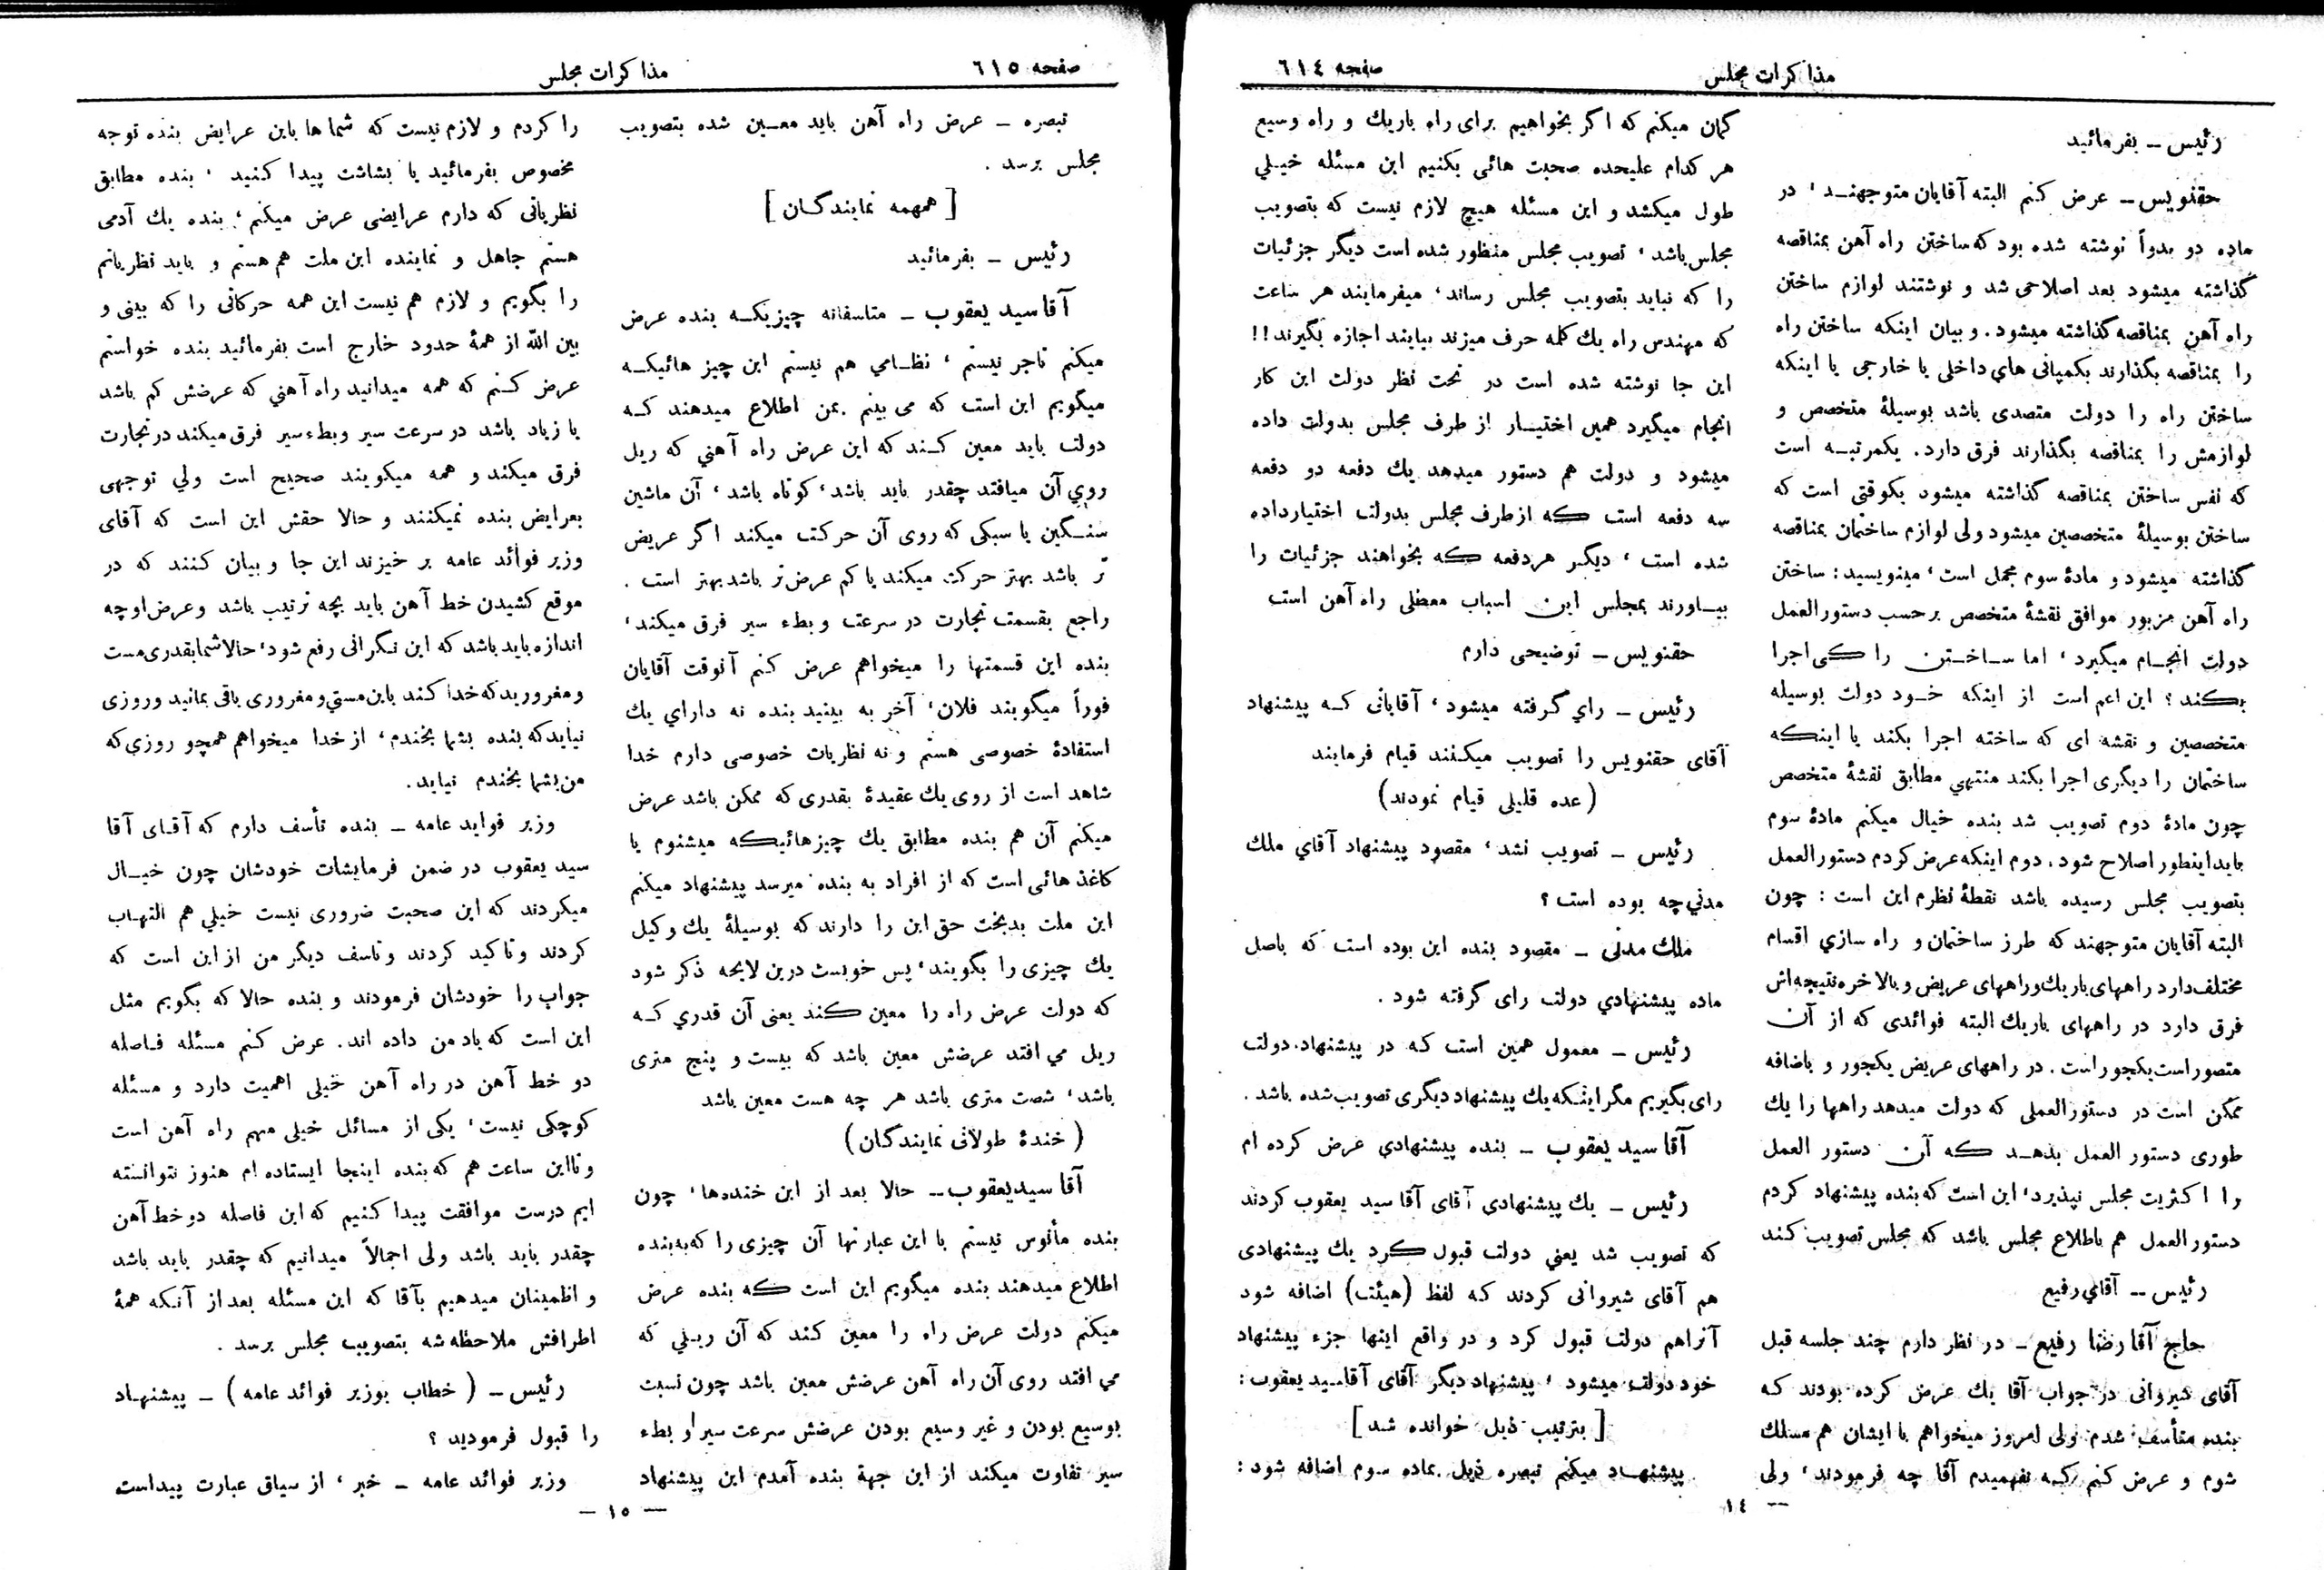 صفحه ٦١٤
مذاكرات مجلس
رئيس ــ بفرمائيد
حقنويس ــ عرض كنم البته آقايان متوجهند، در
ماده دو بدواً نوشته شده بود كه ساختن راه آهن بمناقصه
گذاشته ميشود بعد اصلاحى شد و نوشتند لوازم ساختن
راه آهن بمناقصه گذاشته ميشود. و بيان اينكه ساختن راه
را بمناقصه بگذارند بكمپانى هاي داخلى يا خارجى يا اينكه
ساختن راه را دولت متصدى باشد بوسيلۀ متخصص و
لوازمش را بمناقصه بگذارند فرق دارد. يكمرتبه است
كه نفس ساختن بمناقصه گذاشته ميشود يكوقتى است كه
ساختن بوسيلۀ متخصصين ميشود ولى لوازم ساختمان بمناقصه
گذاشته ميشود و مادۀ سوم مجمل است، مينويسيد: ساختن
راه آهن مزبور موافق نقشۀ متخصص برحسب دستورالعمل
دولت انجام ميگيرد، اما ساختن را كى اجرا
بكند؟ اين اعم است از اينكه خود دولت بوسيله
متخصصين و نقشه اى كه ساخته اجرا بكند يا اينكه
ساختمان را ديگرى اجرا بكند منتهي مطابق نقشۀ متخصص
چون مادۀ دوم تصويب شد بنده خيال ميكنم مادۀ سوم
بايد اينطور اصلاح شود. دوم اينكه عرض كردم دستورالعمل
بتصويب مجلس رسيده باشد نقطۀ نظرم اين است: چون
البته آقايان متوجهند كه طرز ساختمان و راه سازي اقسام
مختلف دارد راههاى باريك وراههاى عريض و بالاخره نتيجه اش
فرق دارد در راههاى باريك البته فوائدى كه از آن
متصور است يكجور است. در راههاى عريض يكجور و باضافه
ممكن است در دستورالعملى كه دولت ميدهد راهها را يك
طورى دستور العمل بدهد كه آن دستور العمل
را اكثريت مجلس نپذيرد، اين است كه بنده پيشنهاد كردم
دستور العمل هم باطلاع مجلس باشد كه مجلس تصويب كند
رئيس ــ آقاي رفيع
حاج آقا رضا رفيع ــ در نظر دارم چند جلسه قبل
آقاى شيروانى در جواب آقا يك عرض كرده بودند كه
بنده متأسف شدم ولى امروز ميخواهم با ايشان هم مسلك
شوم و عرض كنم كه نفهميدم آقا چه فرمودند، ولى
گمان ميكنم كه اگر بخواهيم براى راه باريك و راه وسيع
هر كدام عليحده صحبت هائى بكنيم اين مسئله خيلي
طول ميكشد و اين مسئله هيچ لازم نيست كه بتصويب
مجلس باشد، تصويب مجلس منظور شده است ديگر جزئيات
را كه نبايد بتصويب مجلس رساند، ميفرمايند هر ساعت
كه مهندس راه يك كلمه حرف ميزند بيايند اجازه بگيرند!!
اين جا نوشته شده است در تحت نظر دولت اين كار
انجام ميگيرد همين اختيار از طرف مجلس بدولت داده
ميشود و دولت هم دستور ميدهد يك دفعه دو دفعه
سه دفعه است كه ازطرف مجلس بدولت اختيارداده
شده است، ديگر هردفعه كه بخواهند جزئيات را
بياورند بمجلس اين اسباب معطلى راه آهن است
حقنويس ــ توضيحى دارم
رئيس ــ راي گرفته ميشود، آقايانى كه پيشنهاد
آقاى حقنويس را تصويب ميكنند قيام فرمايند
(عده قليلى قيام نمودند)
رئيس ــ تصويب نشد، مقصود پيشنهاد آقاي ملك
مدني چه بوده است؟
ملك مدنى ــ مقصود بنده اين بوده است كه باصل
ماده پيشنهادي دولت راى گرفته شود.
رئيس ــ معمول همين است كه در پيشنهاد دولت
راى بگيريم مگر اينكه يك پيشنهاد ديگرى تصويب شده باشد.
آقا سيد يعقوب ــ بنده پيشنهادي عرض كرده ام
رئيس ــ يك پيشنهادى آقاى آقا سيد يعقوب كردند
كه تصويب شد يعني دولت قبول كرد يك پيشنهادى
هم آقاى شيروانى كردند كه لفظ (هيئت) اضافه شود
آنراهم دولت قبول كرد و در واقع اينها جزء پيشنهاد
خود دولت ميشود، پيشنهاد ديگر آقاى آقاسيد يعقوب:
[بترتيب ذيل خوانده شد]
پيشنهاد ميكنم تبصره ذيل بماده سوم اضافه شود:
ــ ١٤
صفحه ٦١٥
مذاكرات مجلس
تبصره ــ عرض راه آهن بايد معين شده بتصويب
مجلس برسد.
[همهمه نمايندگان]
رئيس ــ بفرمائيد
آقا سيد يعقوب ــ متاسفانه چيزيكه بنده عرض
ميكنم تاجر نيستم، نظامي هم نيستم اين چيز هائيكه
ميگويم اين است كه مى بينم بمن اطلاع ميدهند كه
دولت بايد معين كند كه اين عرض راه آهني كه ريل
روي آن ميافتد چقدر بايد باشد، كوتاه باشد، آن ماشين
سنگين يا سبكى كه روى آن حركت ميكند اگر عريض
تر باشد بهتر حركت ميكند يا كم عرض تر باشد بهتر است.
راجع بقسمت تجارت در سرعت و بطاء سير فرق ميكند،
بنده اين قسمتها را ميخواهم عرض كنم آنوقت آقايان
فوراً ميگويند فلان، آخر به بينيد بنده نه داراي يك
استفادۀ خصوصى هستم و نه نظريات خصوصى دارم خدا
شاهد است از روى يك عقيدۀ بقدرى كه ممكن باشد عرض
ميكنم آن هم بنده مطابق يك چيزهائيكه ميشنوم يا
كاغذ هائى است كه از افراد به بنده ميرسد پيشنهاد ميكنم
اين ملت بدبخت حق اين را دارند كه بوسيلۀ يك وكيل
يك چيزى را بگويند، پس خوبست درين لايحه ذكر شود
كه دولت عرض راه را معين كند يعنى آن قدري كه
ريل مي افتد عرضش معين باشد كه بيست و پنج مترى
باشد، شصت مترى باشد هر چه هست معين باشد
(خندۀ طولانى نمايندگان)
آقا سيد يعقوب ــ حالا بعد از اين خنده ها، چون
بنده مأنوس نيستم با اين عبارتها آن چيزى را كه به بنده
اطلاع ميدهند بنده ميگويم اين است كه بنده عرض
ميكنم دولت عرض راه را معين كند كه آن ريلي كه
مي افتد روى آن راه آهن عرضش معين باشد چون نسبت
بوسيع بودن و غير وسيع بودن عرضش سرعت سير و بطاء
سير تفاوت ميكند از اين جهة بنده آمدم اين پيشنهاد
را كردم و لازم نيست كه شما ها باين عرايض بنده توجه
مخصوص بفرمائيد يا بشاشت پيدا كنيد، بنده مطابق
نظرياتى كه دارم عرايضى عرض ميكنم، بنده يك آدمى
هستم جاهل و نماينده اين ملت هم هستم و بايد نظرياتم
را بگويم و لازم هم نيست اين همه حركاتى را كه بينى و
بين الله از همۀ حدود خارج است بفرمائيد بنده خواستم
عرض كنم كه همه ميدانيد راه آهني كه عرضش كم باشد
يا زياد باشد در سرعت سير و بطاء سير فرق ميكند در تجارت
فرق ميكند و همه ميگويند صحيح است ولي توجهى
بعرايض بنده نميكنند و حالا حقش اين است كه آقاى
وزير فوائد عامه بر خيزند اين جا و بيان كنند كه در
موقع كشيدن خط آهن بايد بچه ترتيب باشد وعرض اوچه
اندازه بايد باشد كه اين نگرانى رفع شود، حالا شما بقدرى مست
و مغروريد كه خدا كند باين مستي و مغرورى باقى بمانيد وروزى
نيايد كه بنده بشما بخندم، از خدا ميخواهم همچو روزي كه
من بشما بخندم نيايد.
وزير فوايد عامه ــ بنده تأسف دارم كه آقاى آقا
سيد يعقوب در ضمن فرمايشات خودشان چون خيال
ميكردند كه اين صحبت ضرورى نيست خيلي هم التهاب
كردند و تاكيد كردند و تاسف ديگر من از اين است كه
جواب را خودشان فرمودند و بنده حالا كه بگويم مثل
اين است كه ياد من داده اند. عرض كنم مسئله فاصله
دو خط آهن در راه آهن خيلى اهميت دارد و مسئله
كوچكى نيست، يكى از مسائل خيلى مهم راه آهن است
وتا اين ساعت هم كه بنده اينجا ايستاده ام هنوز نتوانسته
ايم درست موافقت پيدا كنيم كه اين فاصله دو خط آهن
چقدر بايد باشد ولى اجمالاً ميدانيم كه چقدر بايد باشد
و اطمينان ميدهيم بآقا كه اين مسئله بعد از آنكه همۀ
اطرافش ملاحظه شه بتصويب مجلس برسد.
رئيس ــ (خطاب بوزير فوائد عامه) ــ پيشنهاد
را قبول فرموديد؟
وزير فوائد عامه ــ خير، از سياق عبارت پيداست
ــ ١٥ ــ